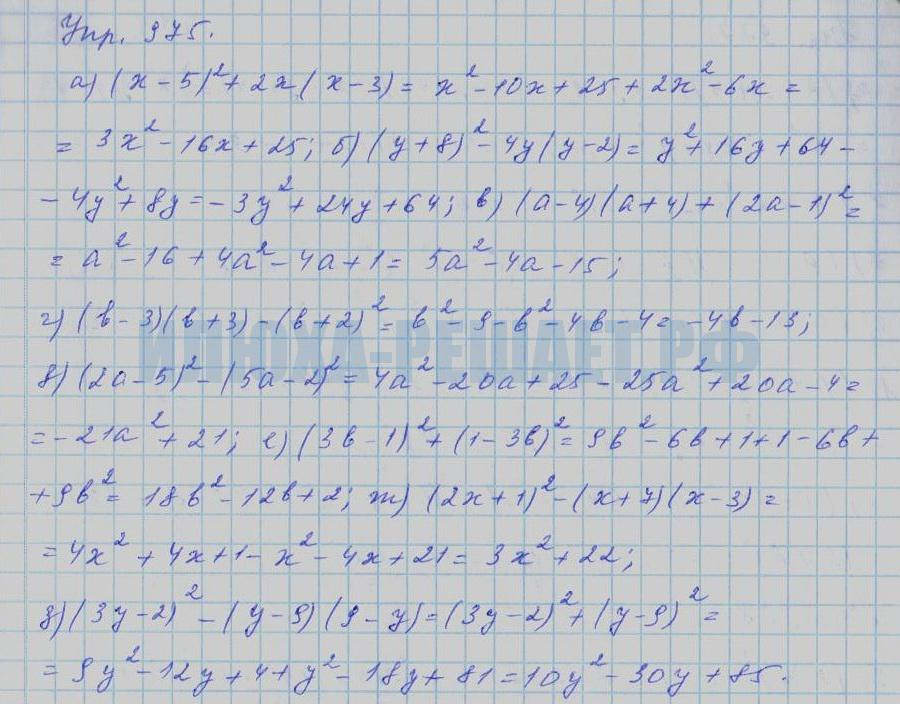 Упр. 975.
а) (x - 5)² + 2x(x - 3) = x² - 10x + 25 + 2x² - 6x =
= 3x² - 16x + 25; б) (y + 8)² - 4y(y - 2) = y² + 16y + 64 -
- 4y² + 8y = -3y² + 24y + 64; в) (a - 4)(a + 4) + (2a - 1)² =
= a² - 16 + 4a² - 4a + 1 = 5a² - 4a - 15;
г) (b - 3)(b + 3) - (b + 2)² = b² - 9 - b² - 4b - 4 = -4b - 13;
ИЛЮХА-РЕШАЕТ.РФ
д) (2a - 5)² - (5a - 2)² = 4a² - 20a + 25 - 25a² + 20a - 4 =
= -21a² + 21; е) (3b - 1)² + (1 - 3b)² = 9b² - 6b + 1 + 1 - 6b +
+ 9b² = 18b² - 12b + 2; ж) (2x + 1)² - (x + 7)(x - 3) =
= 4x² + 4x + 1 - x² - 4x + 21 = 3x² + 22;
з) (3y - 2)² - (y - 9)(9 - y) = (3y - 2)² + (y - 9)² =
= 9y² - 12y + 4 + y² - 18y + 81 = 10y² - 30y + 85.